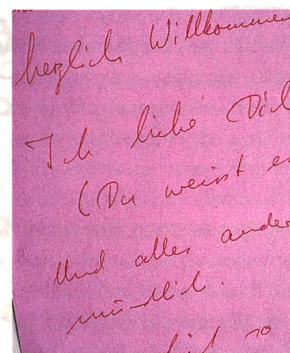 herzlich Willkommen
Ich liebe Dich
(Du weisst e
Und alles ander
mündlich.